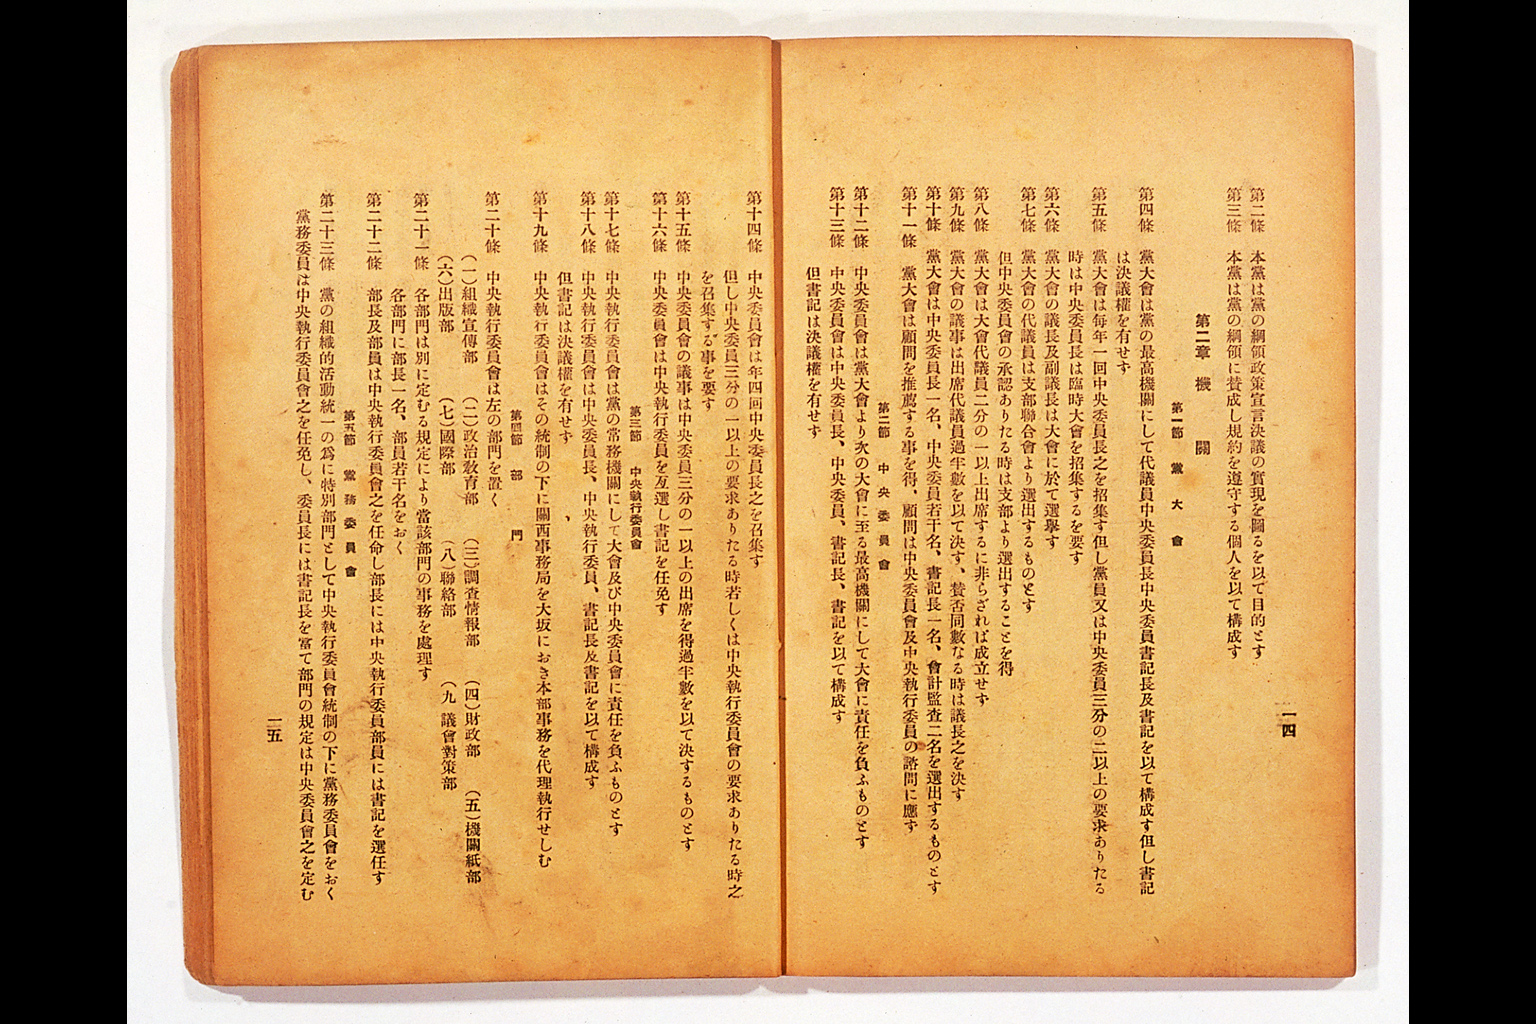 一四
第二條　本黨は黨の綱領政策宣言決議の實現を圖るを以て目的とす
第三條　本黨は黨の綱領に賛成し規約を遵守する個人を以て構成す
第二章　機　關
第一節　黨大會
第四條　黨大會は黨の最高機關にして代議員中央委員長中央委員書記長及書記を以て構成す但し書記
は決議權を有せす
第五條　黨大會は毎年一回中央委員長之を招集す但し黨員又は中央委員三分の二以上の要求ありたる
時は中央委員長は臨時大會を招集するを要す
第六條　黨大會の議長及副議長は大會に於て選擧す
第七條　黨大會の代議員は支部聯合會より選出するものとす
但中央委員會の承認ありたる時は支部より選出することを得
第八條　黨大會は大會代議員二分の一以上出席するに非らざれば成立せす
第九條　黨大會の議事は出席代議員過半數を以て決す、賛否同數なる時は議長之を決す
第十條　黨大會は中央委員長一名、中央委員若干名、書記長一名、會計監査二名を選出するものとす
第十一條　黨大會は顧問を推薦する事を得、顧問は中央委員會及中央執行委員の諮問に應す
第二節　中央委員會
第十二條　中央委員會は黨大會より次の大會に至る最高機關にして大會に責任を負ふものとす
第十三條　中央委員會は中央委員長、中央委員、書記長、書記を以て構成す
但書記は決議權を有せす
第十四條　中央委員會は年四回中央委員長之を召集す
但し中央委員三分の一以上の要求ありたる時若しくは中央執行委員會の要求ありたる時之
を召集する事を要す
第十五條　中央委員會の議事は中央委員三分の一以上の出席を得過半數を以て決するものとす
第十六條　中央委員會は中央執行委員を互選し書記を任免す
第三節　中央執行委員會
第十七條　中央執行委員會は黨の常務機關にして大會及び中央委員會に責任を負ふものとす
第十八條　中央執行委員會は中央委員長、中央執行委員、書記長及書記を以て構成す
但書記は決議權を有せす
第十九條　中央執行委員會はその統制の下に關西事務局を大坂におき本部事務を代理執行せしむ
第四節　部　門
第二十條　中央執行委員會は左の部門を置く
(一)組織宣傳部　(二)政治敎育部　(三)調査情報部　(四)財政部　(五)機關紙部
(六)出版部　(七)國際部　(八)聯絡部　(九　議會對策部
第二十一條　各部門は別に定むる規定により當該部門の事務を處理す
各部門に部長一名、部員若干名をおく
第二十二條　部長及部員は中央執行委員會之を任命し部長には中央執行委員部員には書記を選任す
第五節　黨務委員會
第二十三條　黨の組織的活動統一の爲に特別部門として中央執行委員會統制の下に黨務委員會をおく
黨務委員は中央執行委員會之を任免し、委員長には書記長を當て部門の規定は中央委員會之を定む
一五